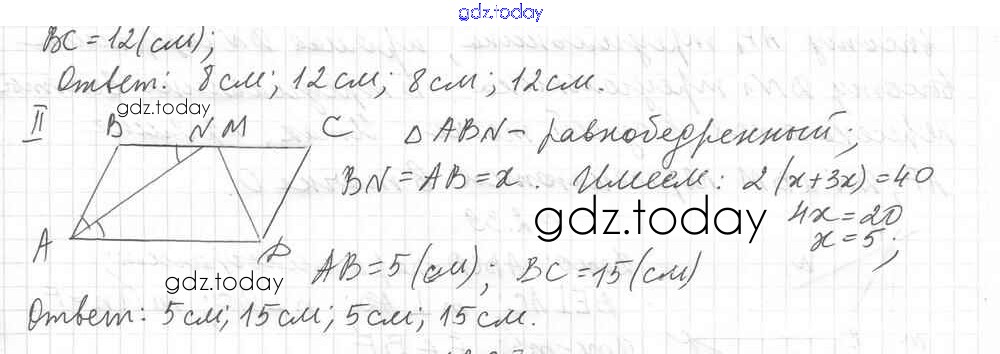 gdz.today
BC = 12 (см);
Ответ: 8 см; 12 см; 8 см; 12 см.
gdz.today
II B N M C △ABN – равнобедренный;
BN = AB = x. Имеем: 2(x+3x) = 40
gdz.today 4x = 20
x = 5;
A D
gdz.today AB = 5 (см); BC = 15 (см)
Ответ: 5 см; 15 см; 5 см; 15 см.